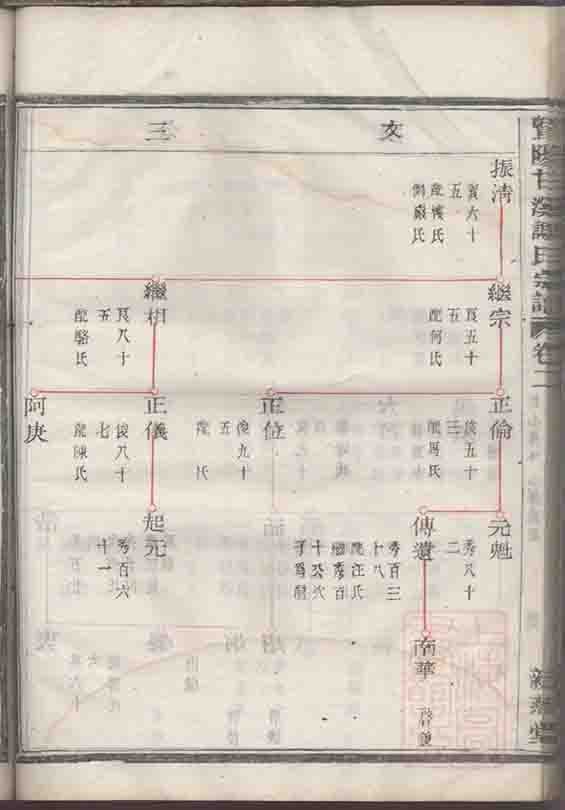 暨陽甘溪謝氏宗譜 卷二
文 三
振清
良六十
五
氏
側嚴氏
繼宗
良五十
五
配何氏
繼相
良八十
五
配駱氏
正倫
俊五十
三
配馬氏
正位
俊九十
五
氏
正儀
俊八十
七
配陳氏
阿庚
元魁
秀八十
二
傳遺
秀百三
十八
配汪氏
繼秀百
十
起元
秀百六
十一
南華